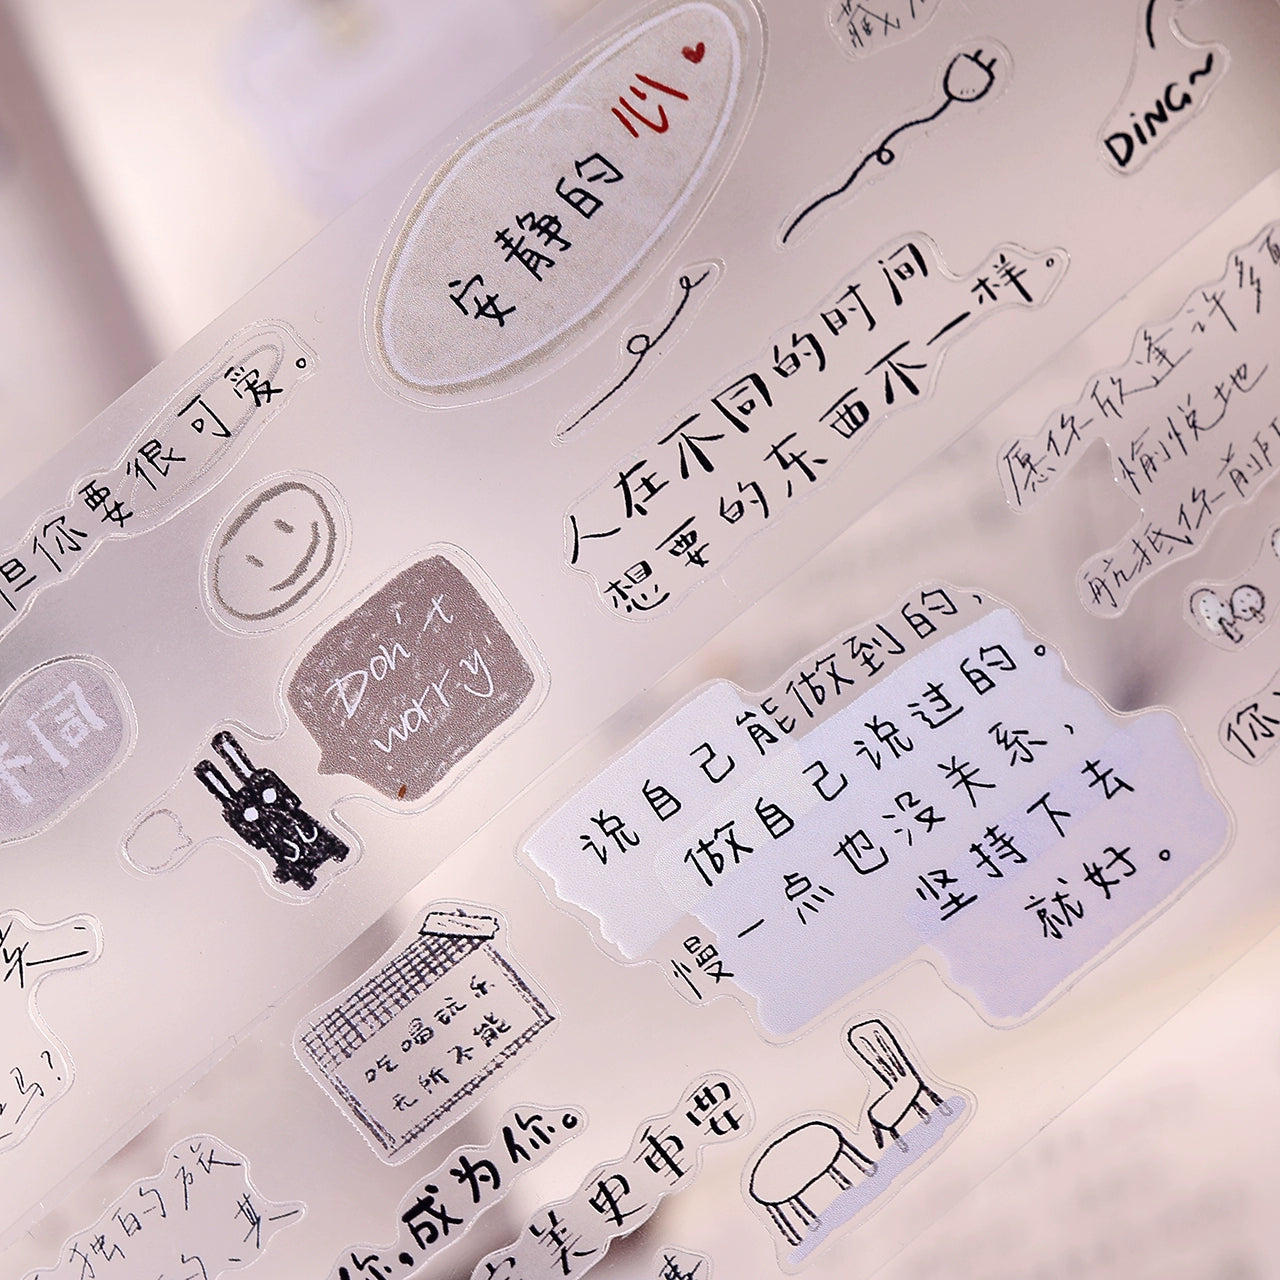 安静的心
DING~
但你要很可爱。
人在不同的时间
想要的东西不一样。
愿你欣逢许多
愉悦地
航抵你前
Don't
worry
说自己能做到的，
做自己说过的。
慢一点也没关系，
坚持下去
就好。
你
吃喝玩乐
无所不能
吗？
你，成为你。
完美更重要
独的旅
的、其